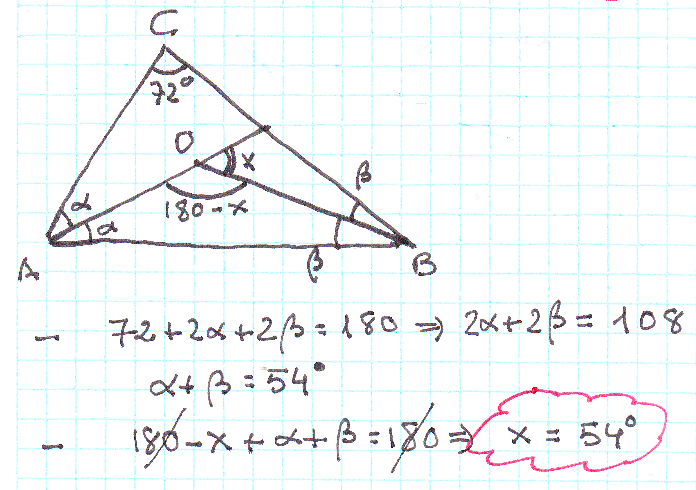 C
72°
O
x
β
180-x
α
α
A
β
B
- 72+2α+2β=180 ⇒ 2α+2β=108
α+β=54°
- 180-x+α+β=180 ⇒ x=54°